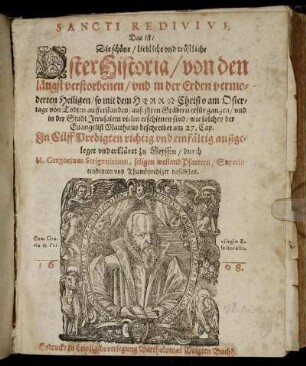 SANCTI REDIVIVI,
Das ist:
Die schöne / liebliche vnd tröstliche
OsterHistoria / von den
längst verstorbenen / vnd in der Erden vermo-
derten Heiligen / so mit dem HERRN Christo am Oster-
tage von Todten aufferstanden / auß jhren Gräbern
vnd
in der Stadt Jerusalem vielen erschienen sind / wie solches der
Euangelist Matthæus beschreibet am 27. Cap.
In Eilff Predigten richtig vnd einfältig außge-
leget vnd erkläret zu Meyssen / durch
M. Gregorium Strigenitium, seligen weiland Pfarrern / Superin-
tendenten vnd
Cum Gra-
tia & Pri-
vilegio E-
lectorali.
16
08.
Gedruckt zu Leipzig / in verlegung Bartholomæi Voigten Buchh.